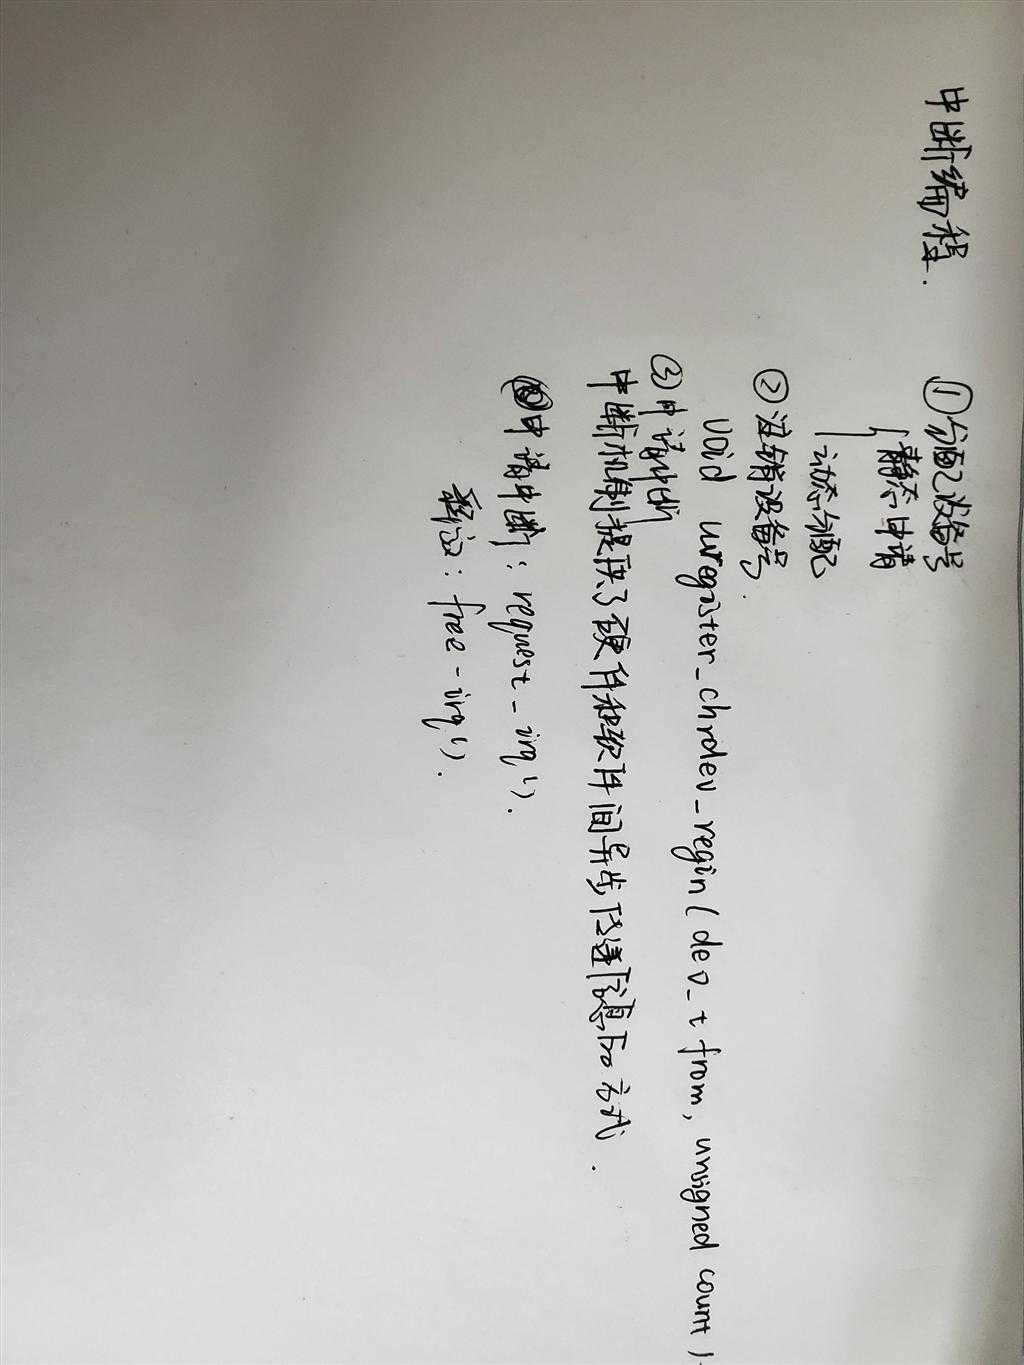 中断编程.
①分配设备号
静态申请
动态分配
②注销设备号.
void unregister_chrdev_regin(dev_t from, unsigned count).
③申请中断
中断机制提供了硬件和软件间异步传递信息的方式.
申请中断: request_irq().
释放: free_irq().